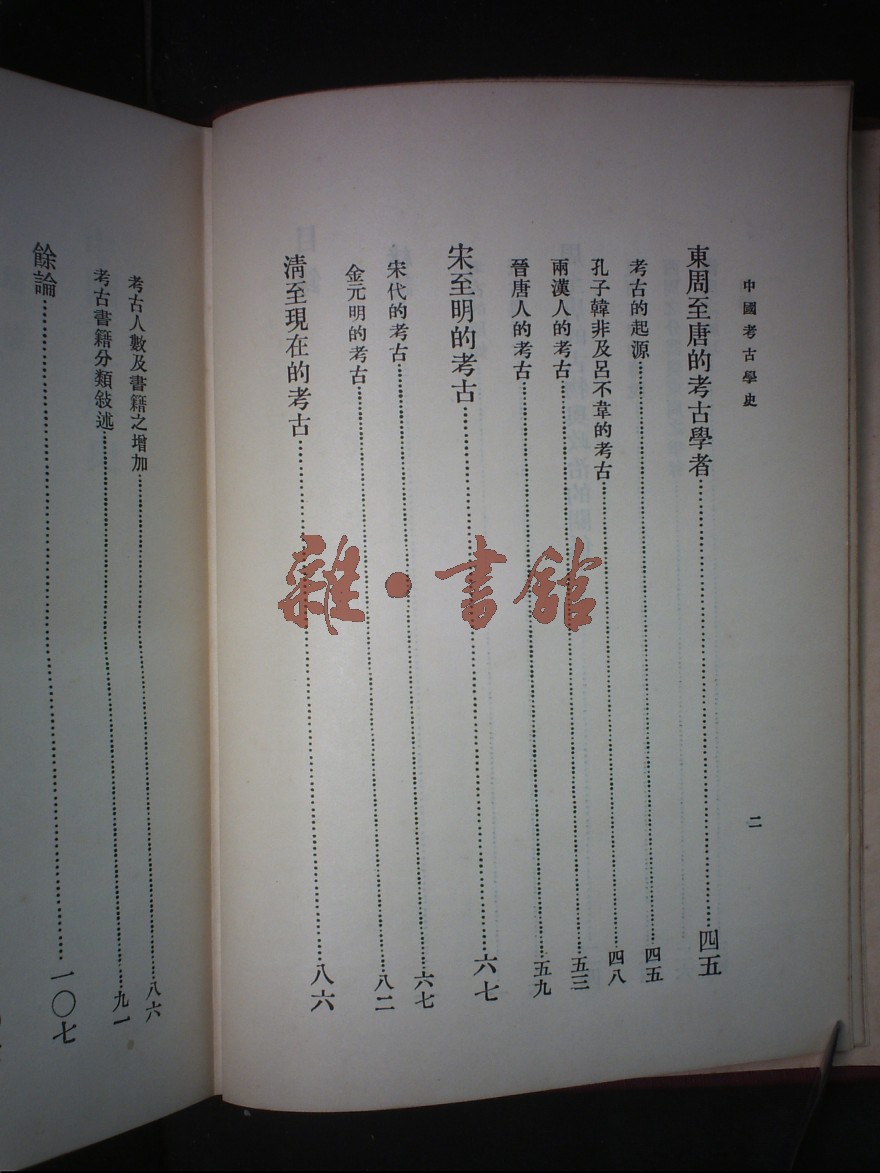 中國考古學史
二
東周至唐的考古學者……四五
考古的起源……四五
孔子韓非及呂不韋的考古……四八
兩漢人的考古……五三
晉唐人的考古……五九
宋至明的考古……六七
宋代的考古……六七
金元明的考古……八二
清至現在的考古……八六
考古人數及書籍之增加……八六
考古書籍分類敍述……九一
餘論……一〇七
雜·書館